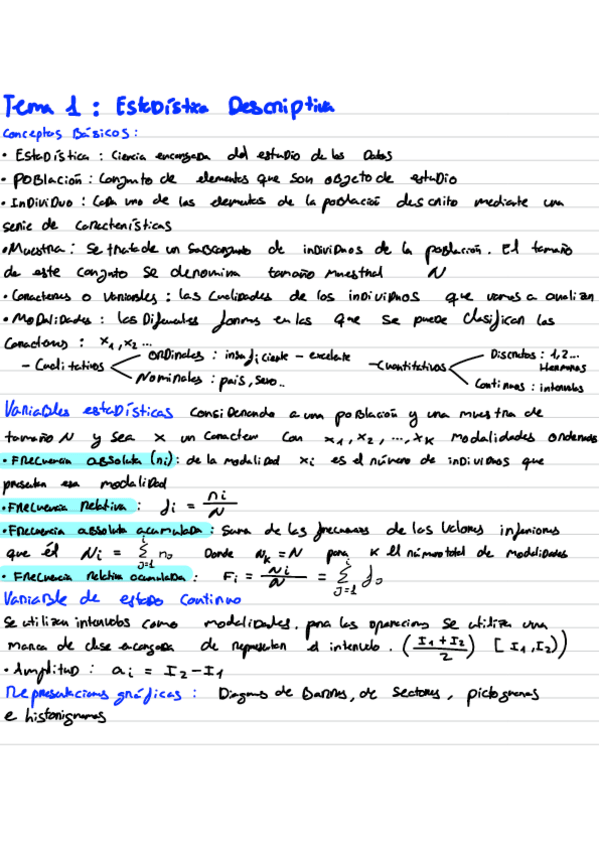 Tema 1 : Estadística Descriptiva
Conceptos Básicos :
• Estadística : Ciencia encargada del estudio de los Datos
• Población : Conjunto de elementos que son objeto de estudio
• Individuo : Cada uno de los elementos de la población descrito mediante una
serie de características
• Muestra : Se trata de un subconjunto de individuos de la población. El tamaño
de este conjunto se denomina tamaño muestral N
• Caracteres o Variables : las Cualidades de los individuos que vamos a analizar
• Modalidades : las Diferentes formas en las que se puede clasificar los
Caracteres : x1, x2 ...
- Cualitativos
ordinales : insuficiente - excelente
Nominales : país, sexo..
- Cuantitativos
Discretos : 1,2...
Hermanos
Continuos : intervalos
Variables estadísticas Considerando a una población y una muestra de
tamaño N y sea x un Caracter Con x1, x2, ..., xK modalidades ordenadas
• Frecuencia absoluta (ni) : de la modalidad xi es el número de individuos que
presentan esa modalidad
• Frecuencia Relativa : fi = ni / N
• Frecuencia absoluta acumulada : Suma de las frecuencias de los Valores inferiores
que él Ni = Σ(j=1, i) nj Donde Nk = N para K el número total de modalidades
• Frecuencia Relativa acumulada : Fi = Ni / N = Σ(j=1, i) fj
Variable de estado Continuo
Se utilizan intervalos como modalidades. para las operaciones se utiliza una
marca de clase encargada de representar el intervalo. ( (I1 + I2) / 2 ) [ I1, I2) )
• Amplitud : ai = I2 - I1
Representaciones gráficas : Diagramas de Barras, de sectores, pictogramas
e historigramas